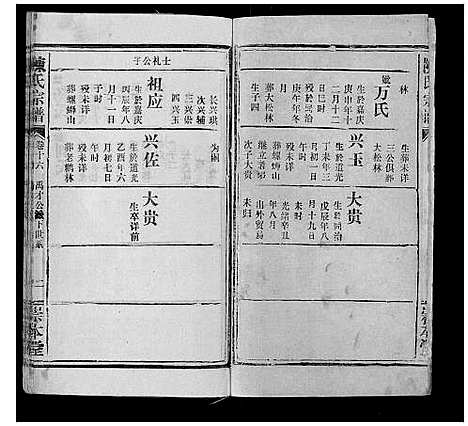 林
生葬未详
三公俱葬
大松林
妣万氏
生於嘉庆
庚申年十
二月十二
日巳时
殁於同治
庚午年冬
月初三日
葬大松林
生子四
兴玉
生於道光
丁未年三
月初一日
午时
殁未详
葬螺蛳山
继立者娣
次子大贵
大贵
生於同治
戊辰年八
月十九日
未时
光绪辛丑
出外贸易
未归
士礼公子
长兴琪
次兴辅
三兴崇
四兴玉
祖应
生於嘉庆
丙辰年八
月十一日
子时
殁未详
葬螺蛳山
为嗣
兴佐
生於道光
乙酉年六
月初七日
午时
殁未详
葬老鹳林
大贵
生卒详前
陳氏宗譜
卷十六
禹才公
下世系
崇本堂